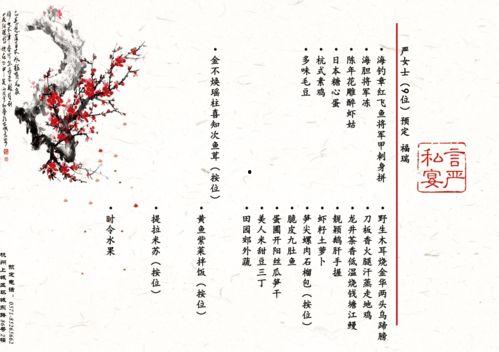 严女士（9位）预定 福瑞
言严
私宴
• 海钓章红飞鱼将军甲刺身拼
• 海胆将军冻
• 陈年花雕醉虾姑
• 日本糖心蛋
• 杭式素鸡
• 多味毛豆
• 金不焕瑶柱喜知次鱼茸（按位）
• 野生木耳烧金华两头乌蹄髈
• 刀板香火腿汗蒸走地鸡
• 龙井茶香低温烧钱塘江鳗
• 靓颖鹅肝手握
• 虾籽土萝卜
• 笋尖螺肉石榴包（按位）
• 脆皮九肚鱼
• 蛋圃开阳丝瓜笋干
• 美人米甜豆三丁
• 田园郊外蔬
• 黄鱼紫菜拌饭（按位）
• 提拉米苏（按位）
• 时令水果